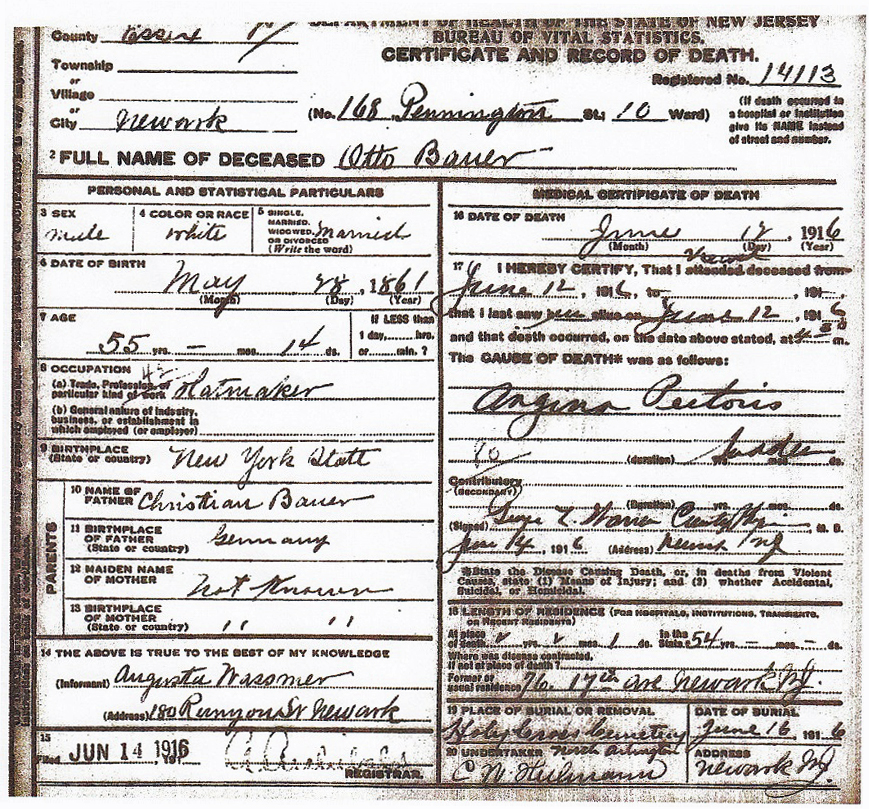 DEPARTMENT OF HEALTH OF THE STATE OF NEW JERSEY
BUREAU OF VITAL STATISTICS.
CERTIFICATE AND RECORD OF DEATH.
County Essex
Township
or
Village
or
City Newark
Registered No. 14113
(No. 168 Pennington St; 10 Ward)
(If death occurred in
a hospital or institution
give its NAME instead
of street and number.
2 FULL NAME OF DECEASED Otto Bauer
PERSONAL AND STATISTICAL PARTICULARS
3 SEX
male
4 COLOR OR RACE
white
5 SINGLE,
MARRIED,
WIDOWED,
OR DIVORCED
(Write the word)
Married
6 DATE OF BIRTH
May 28, 1861
(Month) (Day) (Year)
7 AGE
55 yrs. - mos. 14 ds.
If LESS than
1 day, hrs.
or min. ?
8 OCCUPATION
(a) Trade, Profession, or
particular kind of work Hatmaker
(b) General nature of industry,
business, or establishment in
which employed (or employer)
9 BIRTHPLACE
(State or country) New York State
PARENTS
10 NAME OF
FATHER Christian Bauer
11 BIRTHPLACE
OF FATHER
(State or country) Germany
12 MAIDEN NAME
OF MOTHER
Not Known
13 BIRTHPLACE
OF MOTHER
(State or country) " "
14 THE ABOVE IS TRUE TO THE BEST OF MY KNOWLEDGE
(Informant) Augusta Wassmer
(Address) 180 Runyon St Newark
15
Filed JUN 14 1916
REGISTRAR.
MEDICAL CERTIFICATE OF DEATH
16 DATE OF DEATH
June 12, 1916
(Month) (Day) (Year)
17 I HEREBY CERTIFY, That I attended deceased from
June 12, 1916, to , 191
that I last saw alive on June 12, 1916
and that death occurred, on the date above stated, at 4 30 m.
The CAUSE OF DEATH* was as follows:
Angina Pectoris
(duration) yrs. mos. ds.
Contributory
(SECONDARY)
(Duration) yrs. mos. ds.
(Signed) Warren County M. D.
June 14, 1916 (Address) Newark NJ
*State the Disease Causing Death, or, in deaths from Violent
Causes, state (1) Means of Injury; and (2) whether Accidental,
Suicidal, or Homicidal.
18 LENGTH OF RESIDENCE (FOR HOSPITALS, INSTITUTIONS, TRANSIENTS,
OR RECENT RESIDENTS)
At place
of death yrs. mos. 1 ds. In the
State 54 yrs. - mos. - ds.
Where was disease contracted,
If not at place of death?
Former or
usual residence 76. 17th ave Newark NJ.
19 PLACE OF BURIAL OR REMOVAL
Holy Cross Cemetery
North Arlington
DATE OF BURIAL
June 16, 1916
20 UNDERTAKER
C W Heilmann
ADDRESS
Newark NJ.